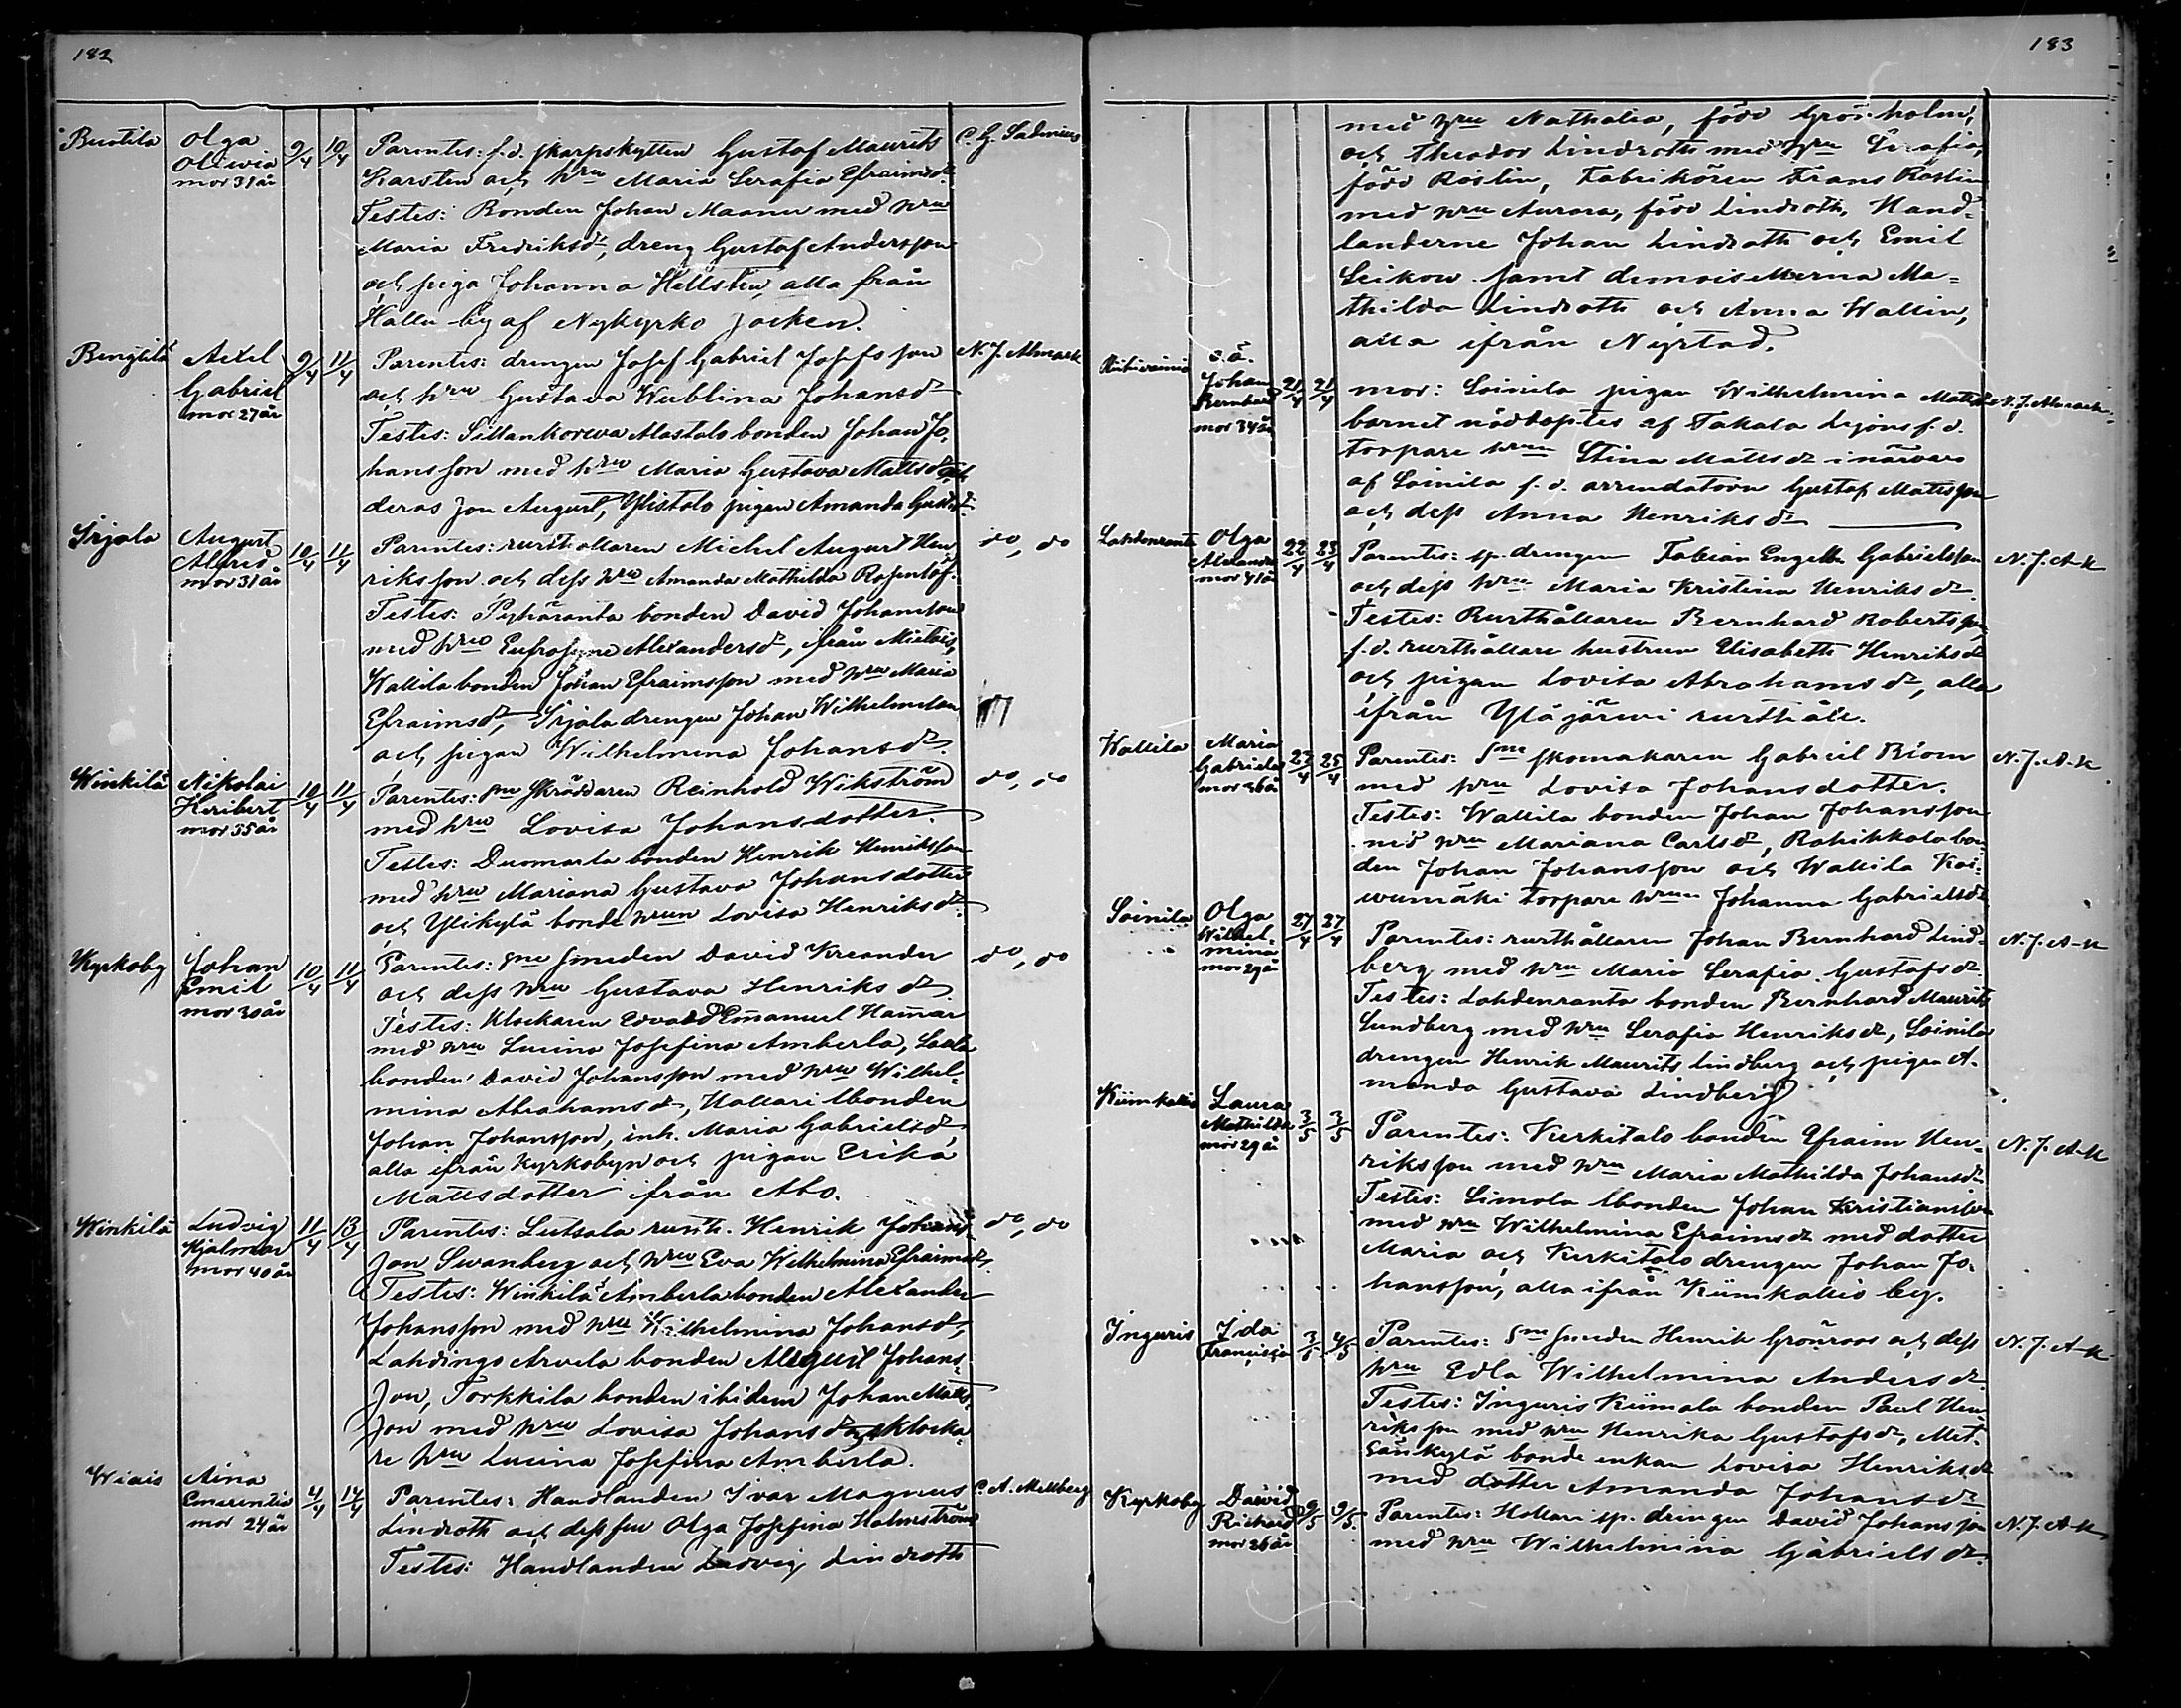 182
Olga
Oliwia
mor 31 år
9/4 10/4
Parentes: f.d. skarpskytten Gustaf Maurits
Karsten och hru Maria Serafia Efraimsdr.
Testes: Bonden Johan Maanu med hru
Maria Fredriksdr, dreng Gustaf Andersson
och piga Johanna Hellsten, alla från
Kallu by af Nykyrko socken.
Bengtilä
Axel
Gabriel
mor 27 år
9/4 11/4
Parentes: drengen Josef Gabriel Josefsson
och hru Gustava Johansdr
N. J. Almark
Testes: Sillankorwa Alastalo bonden Johan Jo-
hansson med hru Maria Gustava Mattsdr och
deras son August, Ylistalo pigan Amanda Gustdr.
Sirjala
August
Alfred
mor 31 år
10/4 11/4
Parentes: rusthållaren Michel August Hen
riksson och dess hru Amanda Mathilda Rosenlöf.
do, do
Testes: Pyhäranta bonden David Johansson
med hru Eufrosyne Alexandersdr, ifrån Mietois,
Wallila bonden Johan Efraimsson med hru Maria
Efraimsdr, Sirjala drengen Johan Wilhelmsson
och pigan Wilhelmina Johansdr.
Winkilä
Nikolai
Heribert
mor 35 år
10/4 11/4
Parentes: sne skräddaren Reinhold Wikström
med hru Lovisa Johansdotter.
do, do
Testes: Duomarla bonden Henrik Henriksson
med hru Mariana Gustava Johansdotter
och Ylikylä bonde hrun Lovisa Henriksdr.
Kyrkoby
Johan
Emil
mor 30 år
10/4 11/4
Parentes: sne smeden David Kreander
och dess hru Gustava Henriksdr.
do, do
Testes: Klockaren Edvard Emanuel Hamar
med hru Lucina Josefina Amberla, Laala
bonden David Johansson med hru Wilhel-
mina Abrahamsdr, Hallari lbonden
Johan Johansson, inh. Maria Gabrielsdr
alla ifrån Kyrkobyn och pigan Erika
Mattsdotter ifrån Åbo.
Winkilä
Ludvig
Hjalmar
mor 40 år
11/4 13/4
Parentes: Lutsala rusth. Henrik Johans-
son Swanberg och hru Eva Wilhelmina Efraimsdr.
do, do
Testes: Winkilä Amberla bonden Alexander
Johansson med hru Wilhelmina Johansdr,
Lahdingo Arvela bonden August Johans-
son, Torkkila bonden ibidem Johan Matts-
son med hru Lovisa Johansdr, och klocka-
re hru Lucina Josefina Amberla.
Wiais
Aina
Emerentia
mor 24 år
4/4 14/4
Parentes: Handlanden Ivar Magnus
Lindroth och dess fru Olga Josefina Holmström
C. A. Mellberg
Testes: Handlanden Ludvig Lindroth
183
med hru Nathalia, född Grönholm,
och Theodor Lindroth med hru Serafia,
född Roslin, Fabrikören Frans Roslin
med hru Aurora, född Lindroth, Hand-
landerne Johan Lindroth och Emil
Leikow samt demoisellerna Ma-
thilda Lindroth och Anna Wallin,
alla ifrån Nystad.
o.ä.
Johan
Bernhard
mor 34 år
21/4 21/4
mor: Soinila pigan Wilhelmina Mattsdr
N. J. Almark
barnet nöddoptes af Takala Lejons f.d.
torpare hrun Stina Mattsdr i närvaro
af Soinila f.d. arrendatorn Gustaf Mattsson
och dess Anna Henriksdr
Lahdenranta
Olga
Alexandra
mor 41 år
22/4 23/4
Parentes: sp. drengen Fabian Engelb. Gabrielsson
och dess hru Maria Kristina Henriksdr.
N. J. A-k
Testes: Rusthållaren Bernhard Robertsson,
f.d. rusthållare hustrun Elisabeth Henriksdr
och pigan Lovisa Abrahamsdr, alla
ifrån Yläjärwi rusthåll.
Wallila
Maria
Gabriela
mor 36 år
23/4 25/4
Parentes: sne skomakaren Gabriel Blom
med hru Lovisa Johansdotter.
N. J. A-k
Testes: Wallila bonden Johan Johansson
med hru Mariana Carlsdr, Rahikkala bon-
den Johan Johansson och Wallila Koi-
wumäki torpare hrun Johanna Gabrielsdr
Soinila
Olga
Wilhel-
mina
mor 29 år
27/4 27/4
Parentes: rusthållaren Johan Bernhard Lind-
berg med hru Maria Serafia Gustafsdr.
N. J. A-k
Testes: Lahdenranta bonden Bernhard Maurits
Sundberg med hru Serafia Henriksdr, Soinila
drengen Henrik Maurits Lindberg och pigan A-
manda Gustava Lindberg
Kiimkallio
Laura
Mathilda
mor 29 år
3/5 3/5
Parentes: Kerkitalo bonden Efraim Hen-
riksson med hru Maria Mathilda Johansdr
N. J. A-k
Testes: Simola lbonden Johan Kristiansson
med hru Wilhelmina Efraimsdr med dotter
Maria och Kerkitalo drengen Johan Jo-
hansson, alla ifrån Kiimkallio by.
Inguris
Ida
Francisca
3/5 4/5
Parentes: sne smeden Henrik Grönroos och dess
hru Edla Wilhelmina Andersdr.
N. J. A-k
Testes: Inguris Kiimala bonden Paul Hen-
riksson med hru Henrika Gustafsdr, Met-
sänkylä bonde enkan Lovisa Henriksdr
med dotter Amanda Johansdr
Kyrkoby
David
Richard
mor 26 år
9/5 9/5
Parentes: Hollari sp. drengen David Johansson
med hru Wilhelmina Gabrielsdr.
N. J. A-k